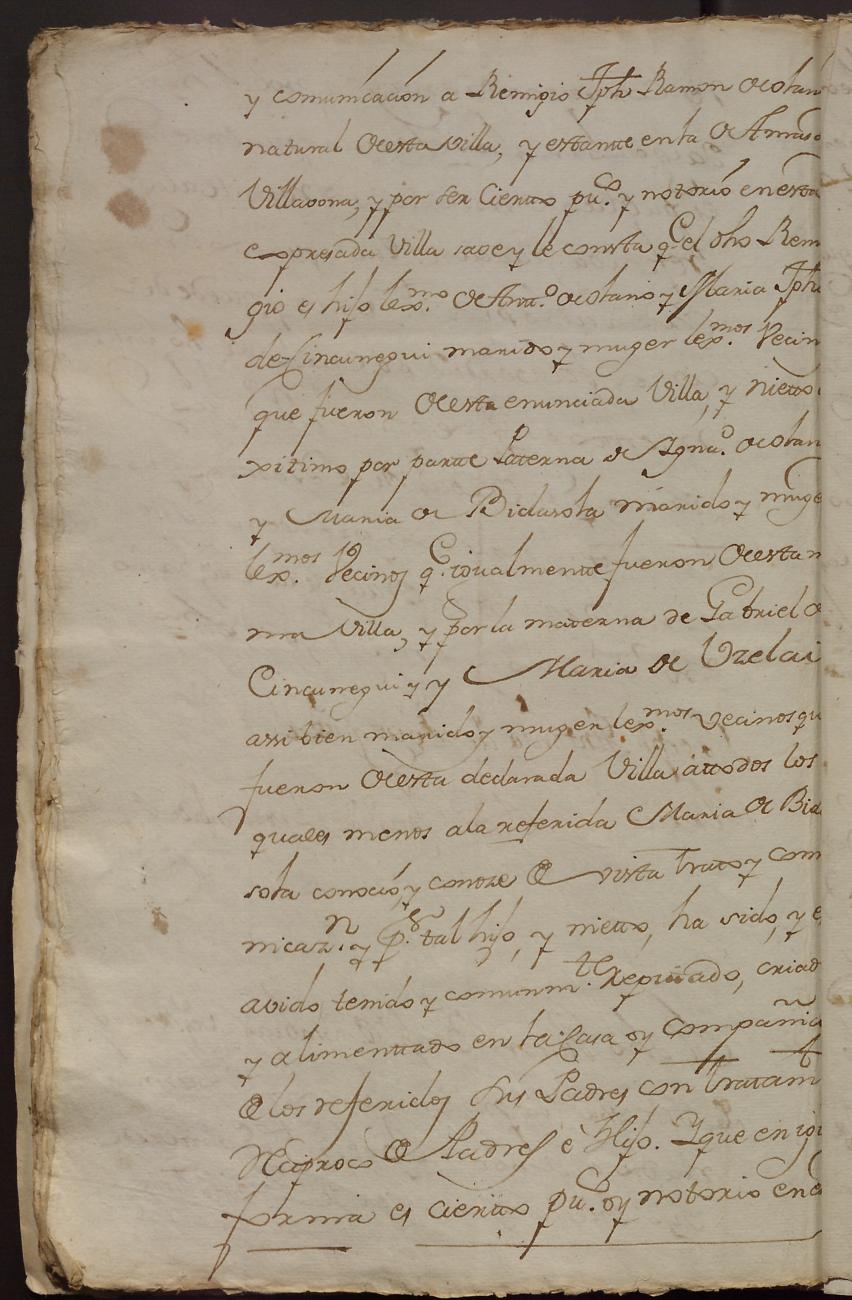 y comunicacion a Remigio Jph Ramon de olan
natural de esta Villa, y estante en la de
Villabona, y por ser Cierto pu.co y notorio en esta
expresada Villa save y le consta q.e el dho Remi
gio es hijo lex.mo de Ant.o de olano y Maria Jph
de Cincunegui marido y muger lex.mos Vecin
que fueron de esta enunciada Villa, y nietto
xitimo por parte Paterna de Agnu.o de olan
y Maria de Bidasola marido y muge
lex.mos Vecinos q.e igualmente fueron de esta m
ma Villa, y por la materna de Gabriel de
Cincunegui y y Maria de Uzelai
assi bien marido y muger lex.mos Vecinos qu
fueron de esta declarada Villa, a ttodos los
quales menos a la referida Maria de Bida
sola conocio, y conoze de vista trato y com
nicaz.n y p.r tal hijo, y nietto, ha sido, y e
avido tenido y comunm.te reputado, criad
y alimenttado en la Casa y Compañia
de los referidos sus Padres con tratam
Reciproco de Padres è Hijo. Y que en igu
forma es cierto pu.co y notorio en e